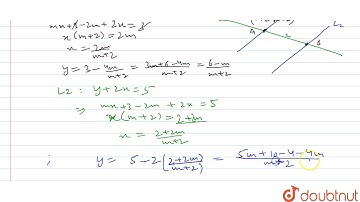 mx + 3 - 2m + 2x = 3
x(m+2) = 2m
x = 2m/m+2
y = 3 - 4m/m+2 = 3m+6-4m/m+2 = 6-m/m+2
L2 : y + 2x = 5
⇒ mx + 3 - 2m + 2x = 5
x(m+2) = 2+2m
x = 2+2m/m+2
; y = 5 - 2(2+2m/m+2) = 5m+10-4-4m/m+2
A
L
B
L2
doubtnut